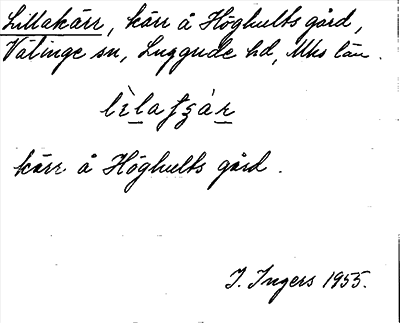 Lillakärr, kärr å Höghults gård,
Välinge sn, Luggude hd, Mhs län.
kärr å Höghults gård.
I. Ingers 1955.